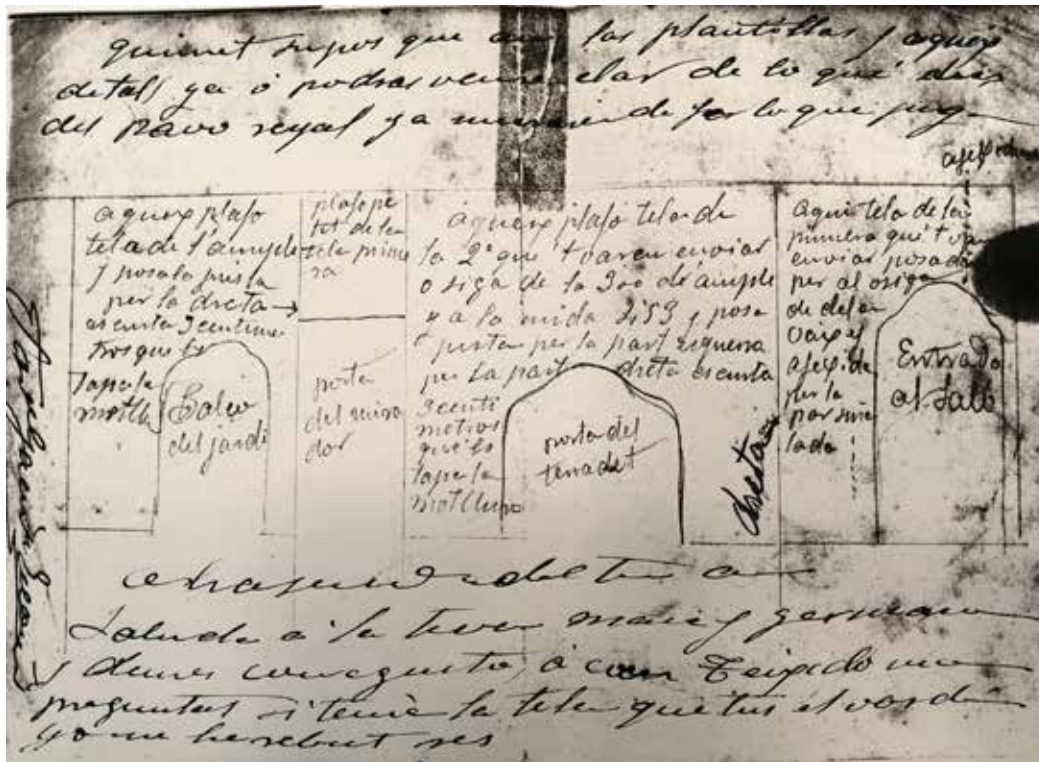 quimet supos que am las plantillas y aqueix
detall ya ó podras veurer clar de lo que dius
del pavo reyal ya
aqueix plafo
tela de l'ample
y posala justa
per la dreta →
escurta 3 centime
tros que es
tapa la
motllu
Salió
del jardi
plafo pe
tit de la
tela prime
ra
porta
del mira
dor
aqueix plafo tela de
la 2ª que t varen enviar
o siga de la 300 de ample
y a la mida 253 y posa
t justa per la part esquerra
per la part dreta escurta
3 centi
metros
que es
tapa la
motllura
porta del
terradet
dreta
aqui tela de la
primera que t van
enviar posada
per al
de dela
baix y
afexida
per la
part
lada
Entrada
al Saló
del teu
Saluda á la teva mare y germana
y dunes á can Teixido me
preguntas si tenía la tela que tus
yo ne he rebut res